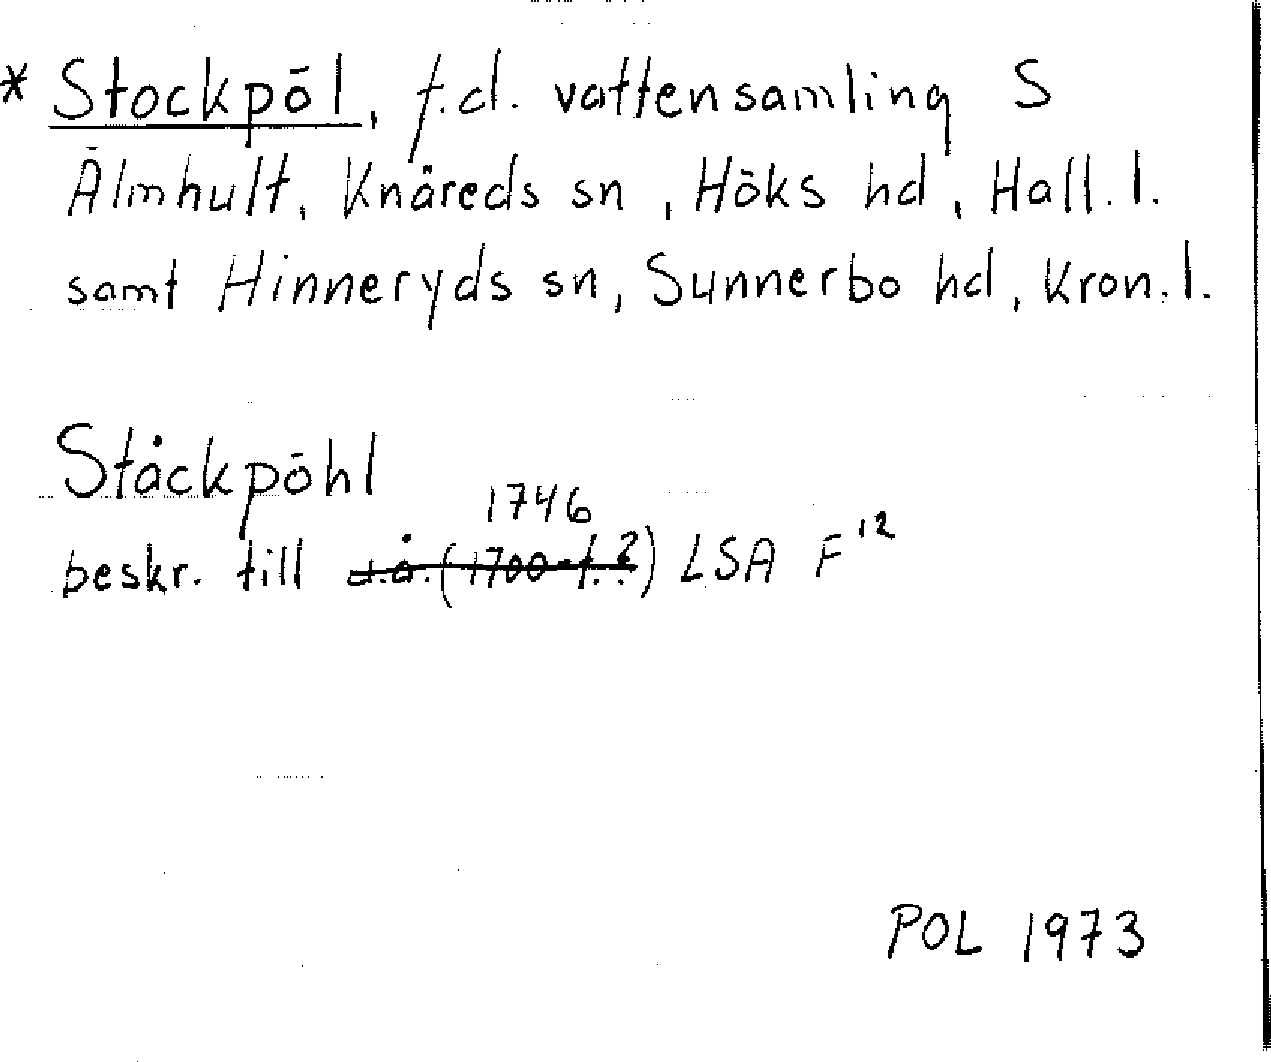 * Stockpöl, f.d. vattensamling S
Älmhult, Knäreds sn, Höks hd, Hall. l.
samt Hinneryds sn, Sunnerbo hd, Kron. l.
Ståckpöhl
1746
beskr. till u.å. (1700-t.?) LSA F 12
POL 1973